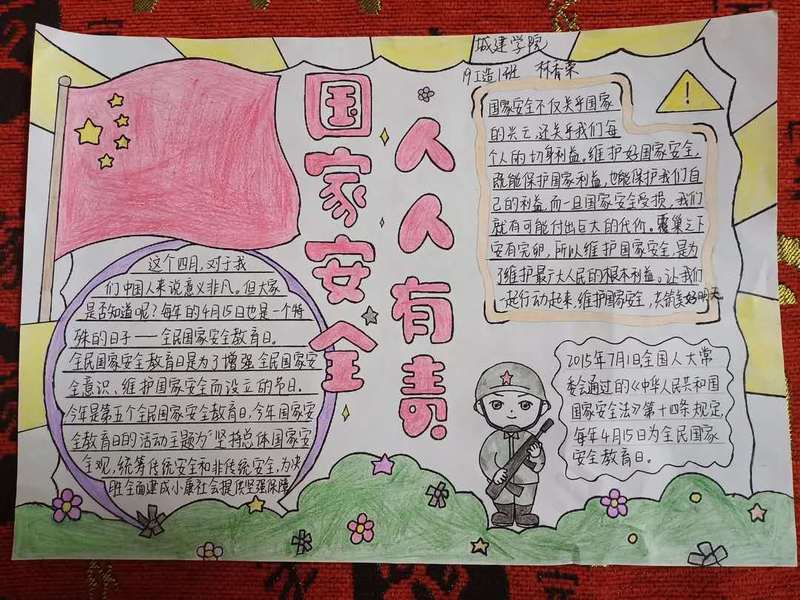 城建学院
19工造1班 林香菜
国家安全
人人有责
国家安全不仅关乎国家
的兴亡,还关乎我们每
个人的切身利益。维护好国家安全,
既能保护国家利益,也能保护我们自
己的利益,而一旦国家安全受损,我们
就有可能付出巨大的代价。覆巢之下
安有完卵,所以维护国家安全,是为
了维护最广大人民的根本利益。让我们
一起行动起来,维护国家安全,共筑美好明天
这个四月,对于我
们中国人来说意义非凡。但大家
是否知道呢?每年的4月15日也是一个特
殊的日子——全民国家安全教育日。
全民国家安全教育日是为了增强全民国家安
全意识、维护国家安全而设立的节日。
今年是第五个全民国家安全教育日。今年国家安
全教育日的活动主题为"坚持总体国家安
全观,统筹传统安全和非传统安全,为决
胜全面建成小康社会提供坚强保障
2015年7月1日,全国人大常
委会通过的《中华人民共和国
国家安全法》第十四条规定,
每年4月15日为全民国家
安全教育日。